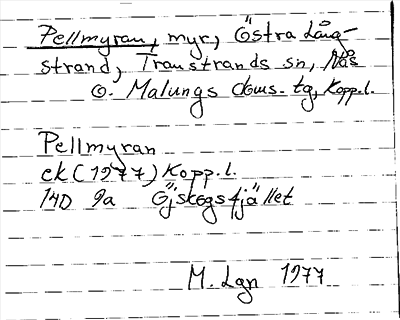 Pellmyran, myr, Östra Lång-
strand, Transtrands sn, Nås
o. Malungs doms. tg, Kopp. l.
Pellmyran
ek (1977) Kopp. l.
14D 9a Öjskogsfjället
M. Lgn 1977